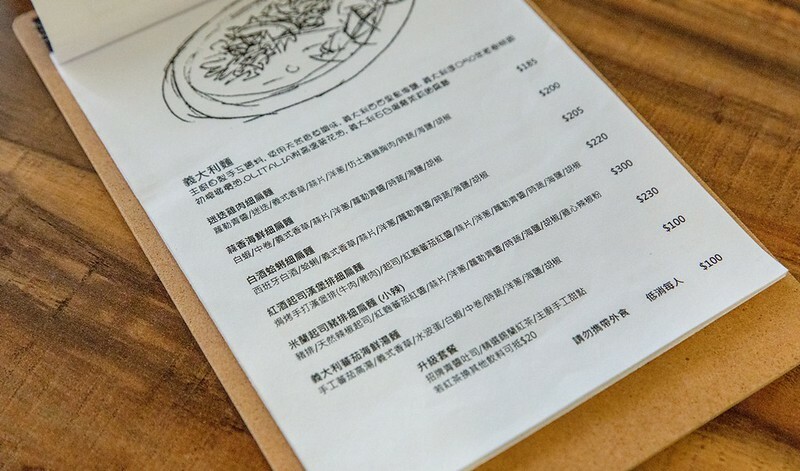 義大利麵
主廚自製手工醬料, 使用天然香草調味, 義大利西西里島海鹽, 義大利
初榨橄欖油,OLITALIA耐高溫葵花油, 義大利石臼
迷迭雞肉細扁麵 $185
蘿勒青醬/迷迭/義式香草/蒜片/洋蔥/仿土雞雞胸肉/時蔬/海鹽/胡椒
蒜香海鮮細扁麵 $200
白蝦/中卷/義式香草/蒜片/洋蔥/蘿勒青醬/時蔬/海鹽/胡椒
白酒蛤蜊細扁麵 $205
西班牙白酒/蛤蜊/義式香草/蒜片/洋蔥/蘿勒青醬/時蔬/海鹽/胡椒
紅酒起司漢堡排細扁麵 $220
焗烤手打漢堡排(牛肉/豬肉)/起司/紅麴蕃茄紅醬/蒜片/洋蔥/蘿勒青醬/時蔬/海鹽/胡椒/雞心辣椒粉
米蘭起司豬排細扁麵 (小辣) $300
豬排/天然辣椒起司/紅麴蕃茄紅醬/蒜片/洋蔥/蘿勒青醬/時蔬/海鹽/胡椒
義大利蕃茄海鮮湯麵 $230
手工蕃茄高湯/義式香草/水波蛋/白蝦/中卷/時蔬/洋蔥/海鹽/胡椒
升級套餐 $100
招牌青醬吐司/精選錫蘭紅茶/主廚手工甜點
若紅茶換其他飲料可抵$20
請勿攜帶外食 低消每人 $100